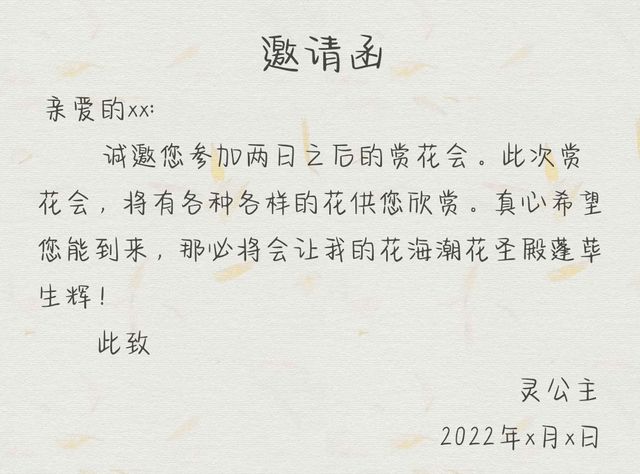 邀请函
亲爱的xx:
诚邀您参加两日之后的赏花会。此次赏
花会，将有各种各样的花供您欣赏。真心希望
您能到来，那必将会让我的花海潮花圣殿蓬荜
生辉！
此致
灵公主
2022年x月x日